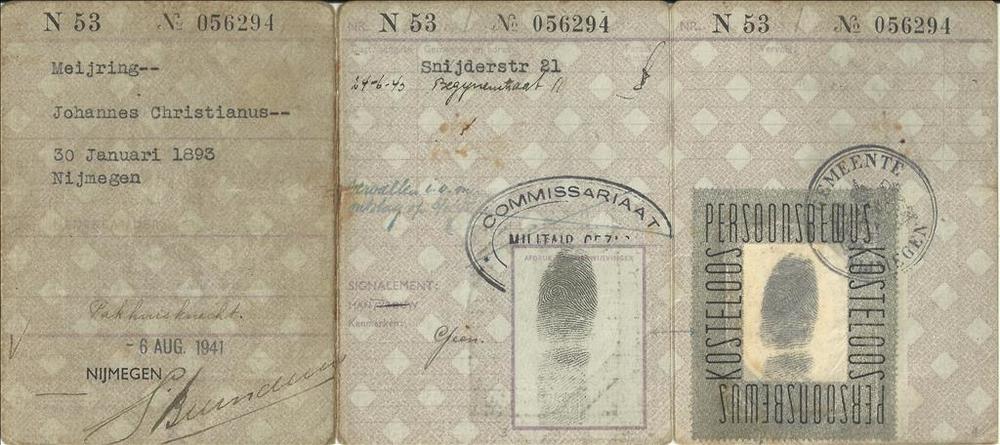 N 53 No 056294
Meijring--
Johannes Christianus--
30 Januari 1893
Nijmegen
Pakhuisknecht.
- 6 AUG. 1941
NIJMEGEN
NR. N 53 No 056294
Snijderstr 21
24-6-43 Begijnenstraat
COMMISSARIAAT
MILITAIR GEZAG
SIGNALEMENT:
MAN
Kenmerken:
Geen.
NR. N 53 No 056294
GEMEENTE
PERSOONSBEWIJS
KOSTELOOS
KOSTELOOS
PERSOONSBEWIJS